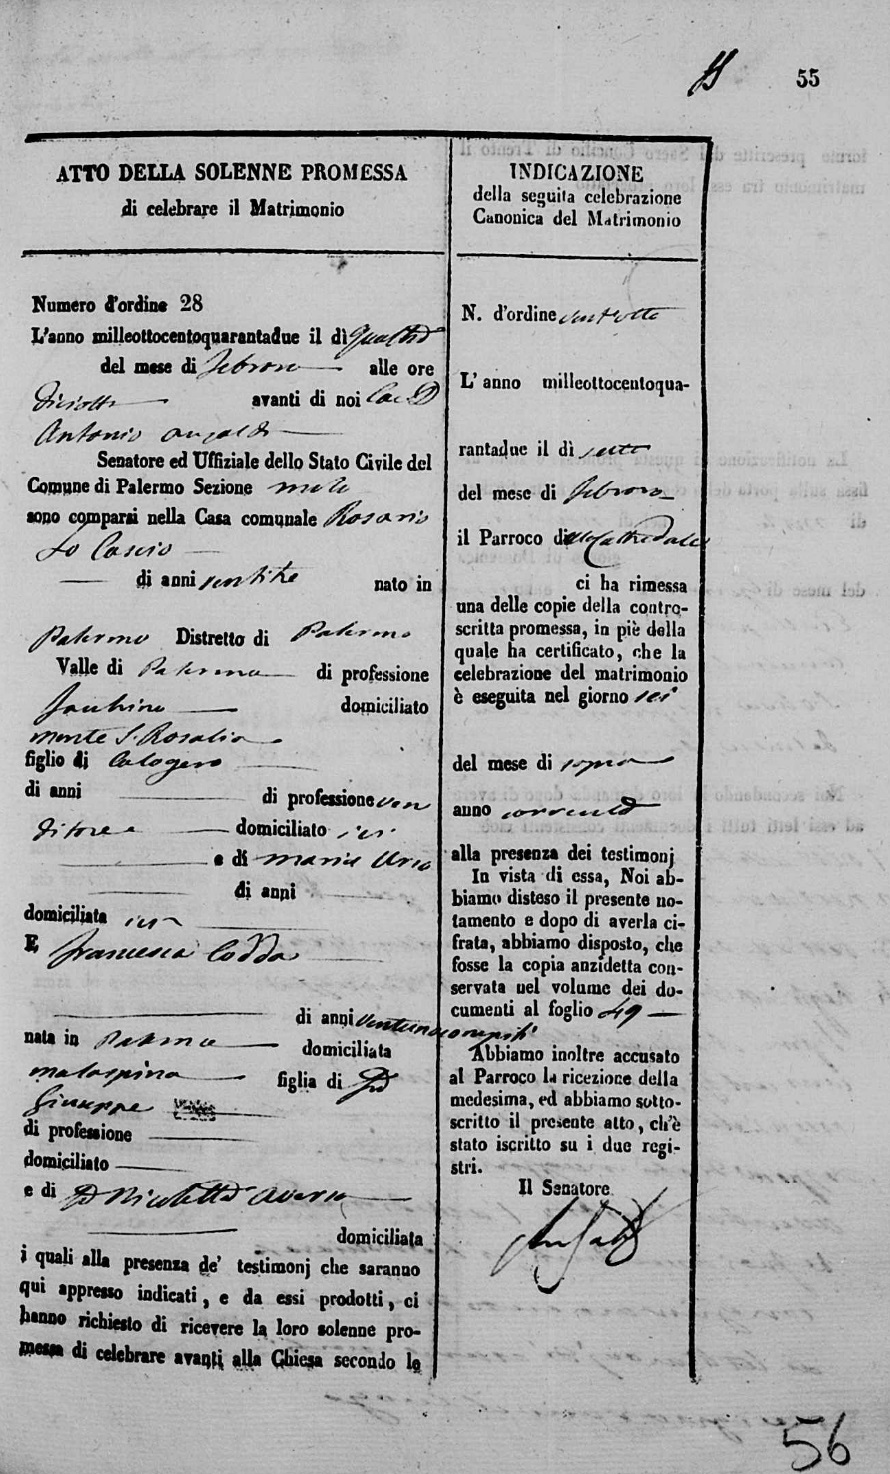 55
ATTO DELLA SOLENNE PROMESSA
di celebrare il Matrimonio
Numero d'ordine 28
L'anno milleottocentoquarantadue il dì quattro
del mese di febraro alle ore
diciotto avanti di noi D
Antonio
Senatore ed Uffiziale dello Stato Civile del
Comune di Palermo Sezione molo
sono comparsi nella Casa comunale Rosario
Lo Cascio
di anni ventitre nato in
Palermo Distretto di Palermo
Valle di Palermo di professione
domiciliato
monte S. Rosalia
figlio di Calogero
di anni di professione ven
ditore domiciliato ivi
e di Maria Urso
di anni
domiciliata ivi
E francesca Codda
di anni ventuno compiti
nata in Palermo domiciliata
malaspina figlia di D
Giuseppe
di professione
domiciliato
e di D Nicoletta Aversa
domiciliata
i quali alla presenza de' testimonj che saranno
qui appresso indicati, e da essi prodotti, ci
hanno richiesto di ricevere la loro solenne pro-
messa di celebrare avanti alla Chiesa secondo le
INDICAZIONE
della seguita celebrazione
Canonica del Matrimonio
N. d'ordine ventotto
L' anno milleottocentoqua-
rantadue il dì sette
del mese di febraro
il Parroco della Cattedrale
ci ha rimessa
una delle copie della contro-
scritta promessa, in piè della
quale ha certificato, che la
celebrazione del matrimonio
è eseguita nel giorno sei
del mese di sopra
anno corrente
alla presenza dei testimonj
In vista di essa, Noi ab-
biamo disteso il presente no-
tamento e dopo di averla ci-
frata, abbiamo disposto, che
fosse la copia anzidetta con-
servata nel volume dei do-
cumenti al foglio 49
Abbiamo inoltre accusato
al Parroco la ricezione della
medesima, ed abbiamo sotto-
scritto il presente atto, ch'è
stato iscritto su i due regi-
stri.
Il Senatore
56